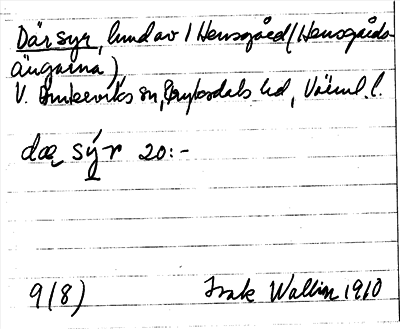 Där syr, lund av 1 Hensgård (Hensgårds-
ängarna),
V. Ämterviks sn, Fryksdals hd, Värml. l.
dæ sýr 20:-
9(8) Isak Wallin 1910